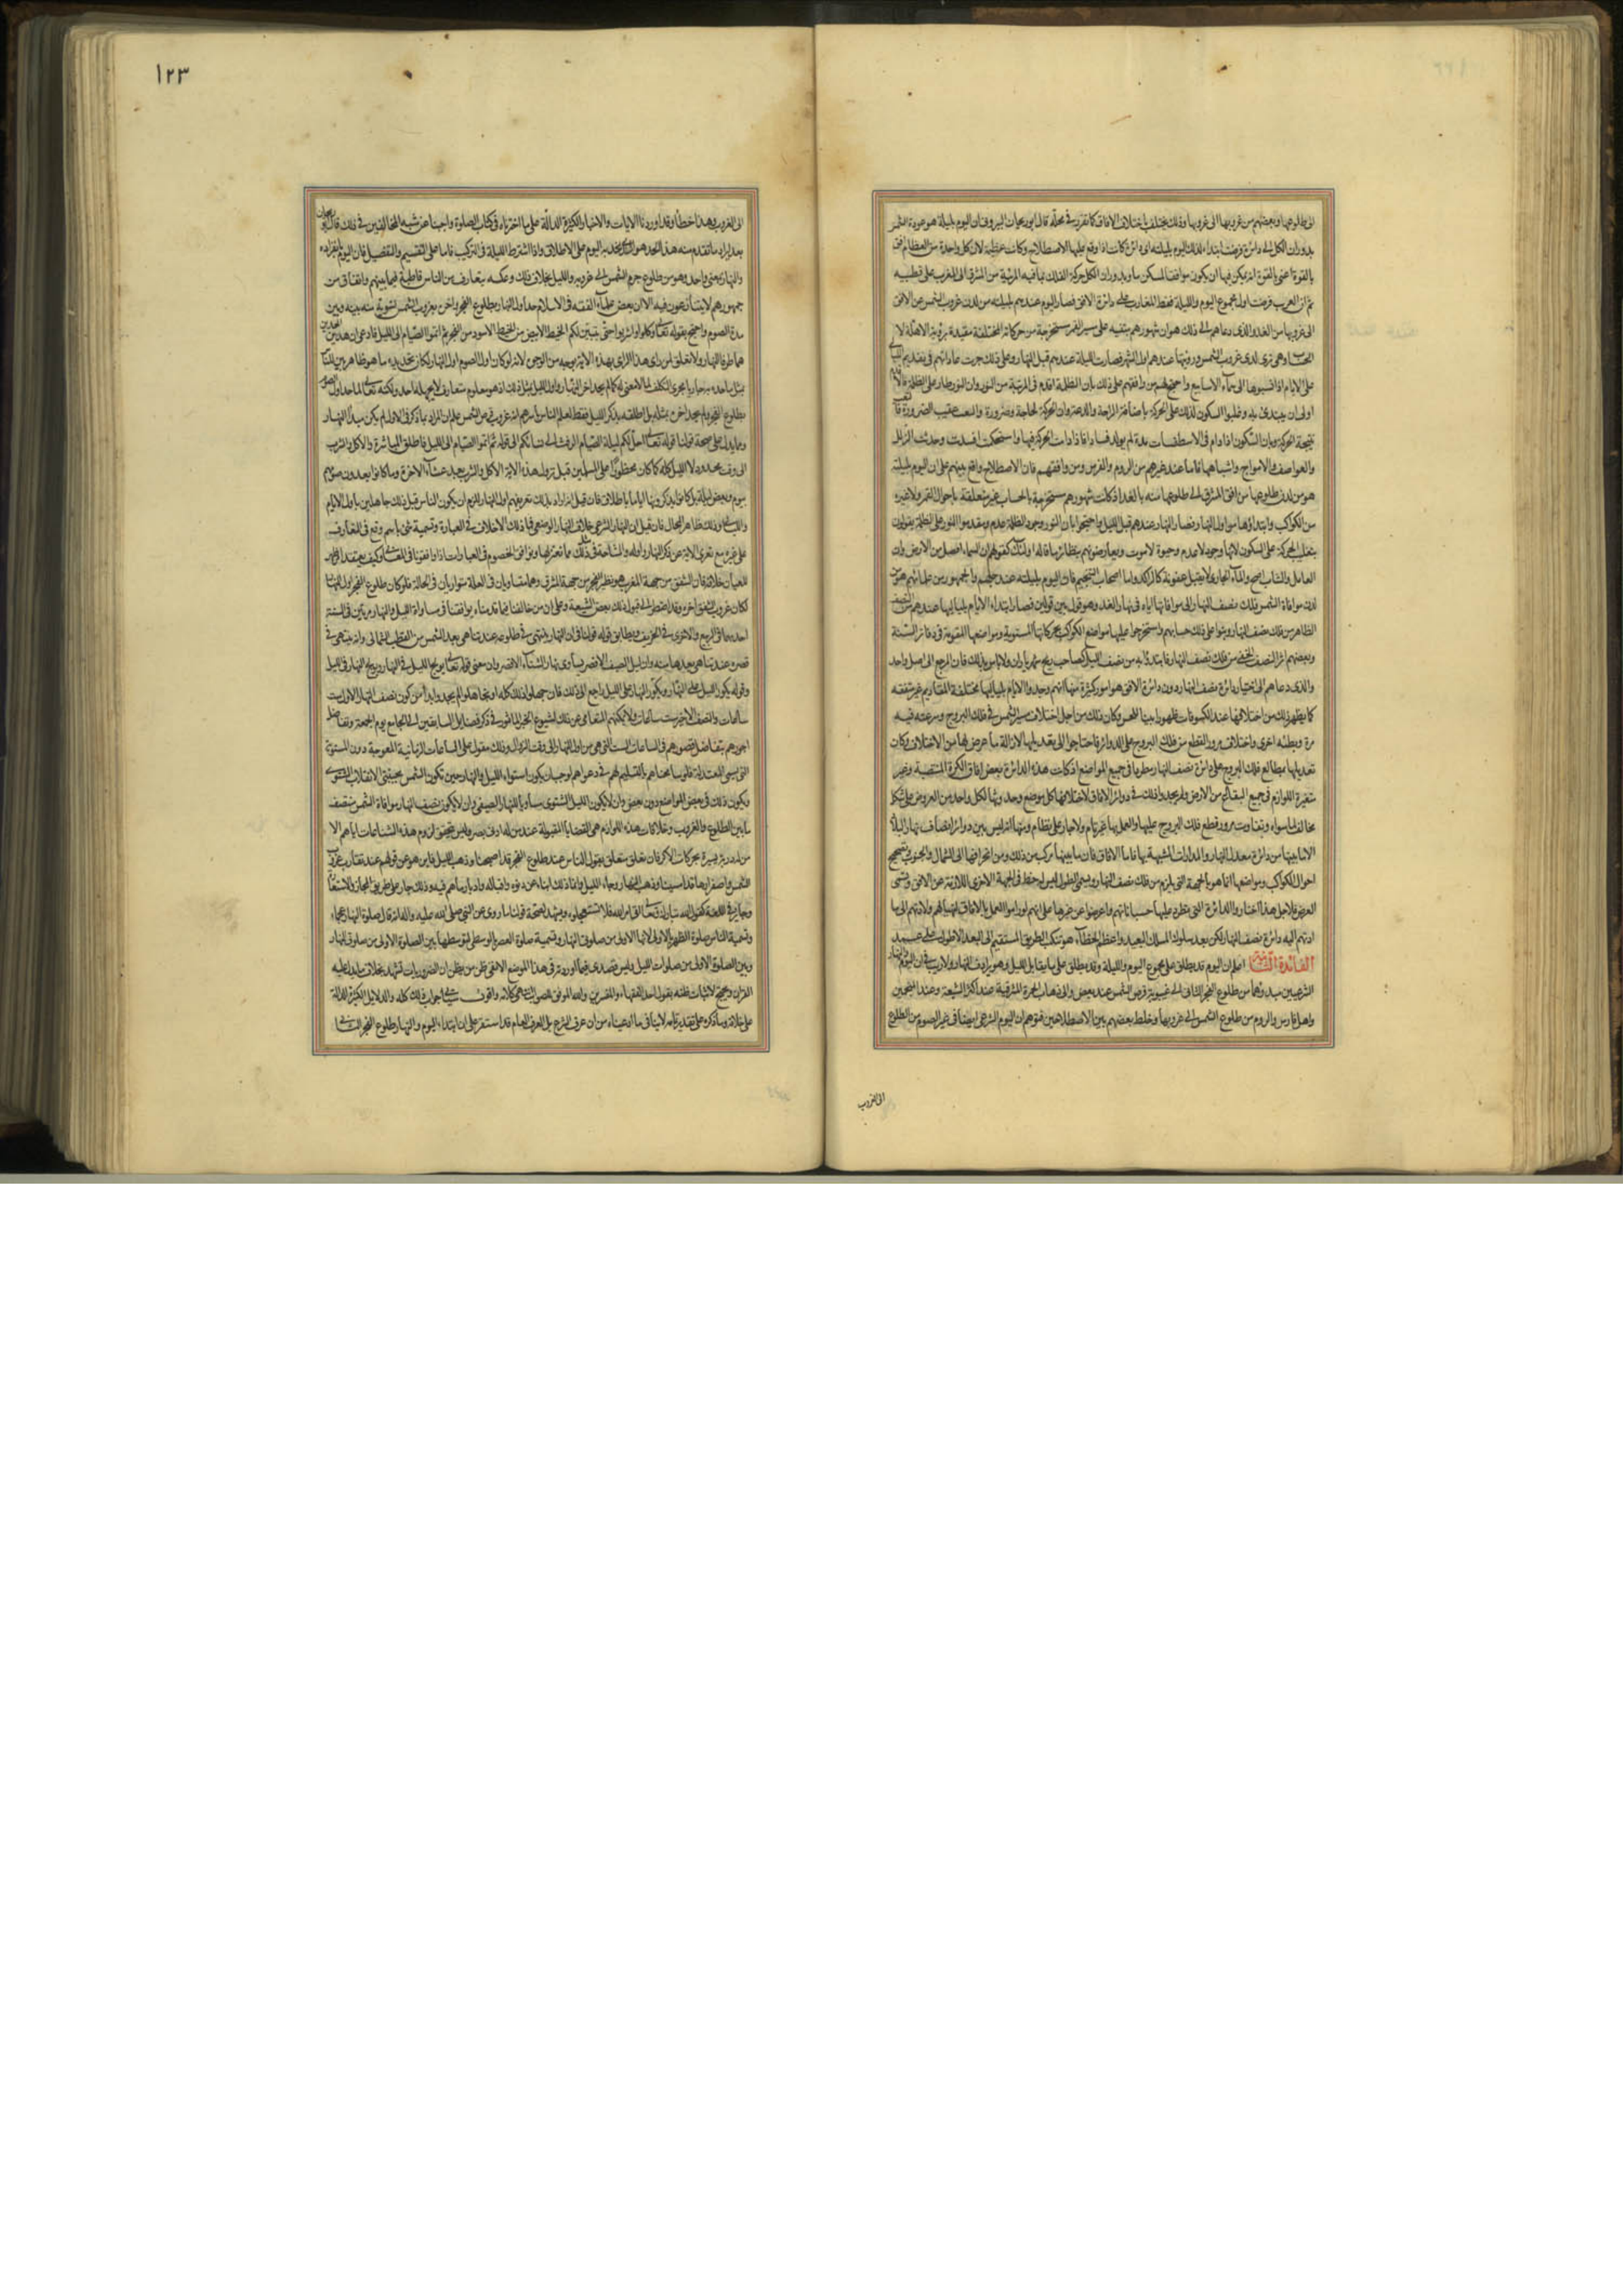 الى طلوعها وبعضهم من غروبها الى غروبها وذلك يختلف باختلاف الافاق كما تقرر في محله قال ابو ريحان البيروني ان اليوم بليلته هو عودة الشمس
بدوران الكل الى دائرة فرضت ابتداء لذلك اليوم بليلته اى دائرة كانت اذا وقع عليها الاصطلاح وكانت عظيمة لان كل واحدة من العظام افق
بالقوة اعنى بالقوة انه يمكن فيها ان يكون موافقا لمسكن ما وبدوران الكل حركة الفلك بما فيه المرئية من المشرق الى المغرب على قطبيه
ثم ان العرب فرضت اول مجموع اليوم والليلة نقط المغارب على دائرة الافق فصار اليوم عندهم بليلته من لدن غروب الشمس عن الافق
الى غروبها من الغد والذى دعاهم الى ذلك هو ان شهورهم مبنية على مسير القمر مستخرجة من حركاته المختلفة مقيدة برؤية الاهلة لا
الحساب وهى ترى لدى غروب الشمس ورؤيتها عندهم اول الشهر فصارت الليلة عندهم قبل النهار وعلى ذلك جرت عاداتهم في تقديم الليالى
على الايام اذا نسبوها الى اسماء الاسابيع واحتج لهم من وافقهم على ذلك بان الظلمة اقدم فى المرتبة من النور وان النور طار على الظلمة فالاقدم
اولى ان يبتدئ به وغلبوا السكون لذلك على الحركة باضافة الراحة والدعة وان الحركة لحاجة وضرورة والتعب عقيب الضرورة فالتعب
نتيجة الحركة وبان السكون اذا دام فى الاسطقسات مدة لم يولد فسادا فاذا دامت الحركة فيها واستحكمت افسدت وحدثت الزلازل
والعواصف والامواج واشباهها فاما عند غيرهم من الروم والفرس ومن وافقهم فان الاصطلاح واقع بينهم على ان اليوم بليلته
هو من لدن طلوعها من افق المشرق الى طلوعها منه بالغد اذ كانت شهورهم مستخرجة بالحساب غير متعلقة باحوال القمر ولا غيره
من الكواكب وابتداؤها من اول النهار فصار النهار عندهم قبل الليل واحتجوا بان النور وجود والظلمة عدم ومقدموا النور على الظلمة يقولون
بتغليب الحركة على السكون لانها وجود لا عدم وحيوة لا موت ويعارضونهم بنظائر ما قاله اولئك كقولهم ان السماء افضل من الارض وان
العامل والشاب اصح والماء الجارى لا يقبل عفونة كالراكد واما اصحاب التنجيم فان اليوم بليلته عند جلهم والجمهور من علمائهم هو من
لدن موافاة الشمس فلك نصف النهار الى موافاتها اياه فى نهار الغد وهو قول بين قولين فصار ابتداء الايام بلياليها عندهم من النصف
الظاهر من فلك نصف النهار وبنوا على ذلك حسابهم واستخرجوا عليها مواضع الكواكب بحركاتها المستوية ومواضعها المقومة فى دفاتر السنة
وبعضهم اثر النصف الخفى من فلك نصف النهار فابتدؤا به من نصف الليل كصاحب زيج شهرياران ولا باس بذلك فان المرجع الى اصل واحد
والذى دعاهم الى اختيار دائرة نصف النهار دون دائرة الافق هو امور كثيرة منها انهم وجدوا الايام بلياليها مختلفة المقادير غير متفقة
كما يظهر ذلك من اختلافها عند الكسوفات ظهورا بينا للحس وكان ذلك من اجل اختلاف مسير الشمس فى فلك البروج وسرعته فيه
مرة وبطئه اخرى واختلاف مرور القطع من فلك البروج على الدوائر فاحتاجوا الى تعديلها لازالة ما عرض لها من الاختلاف وكان
تعديلها بمطالع فلك البروج على دائرة نصف النهار مطردا فى جميع المواضع اذ كانت هذه الدائرة بعض افاق الكرة المنتصبة وغير
متغيرة اللوازم فى جميع البقاع من الارض ولم يجدوا ذلك فى دوائر الافاق لاختلافها كل موضع وحدوثها لكل واحد من العروض على شكل
مخالف لما سواه وتفاوت مرور قطع فلك البروج عليها والعمل بها غير تام ولا جار على نظام ومنها انه ليس بين دوائر انصاف نهار البلاد
الا ما بينها من دائرة معدل النهار والمدارات المشبهة بها فاما الافاق فان ما بينها مركب من ذلك ومن انحرافها الى الشمال والجنوب وتصحيح
احوال الكواكب ومواضعها انما هو بالجهة التى يلزم من فلك نصف النهار ويسمى الطول ليس له حظ فى الجهة الاخرى اللازمة عن الافق وتسمى
العرض فلاجل هذا اختاروا الدائرة التى تطرد عليها حسباناتهم واعرضوا عن غيرها على انهم لو راموا العمل بالافاق لتهيا لهم ولادتهم الى ما
ادتهم اليه دائرة نصف النهار لكن بعد سلوك المسلك البعيد واعظم الخطاء هو تنكب الطريق المستقيم الى البعد الاطول على عمد
الفائدة الثانية اعلم ان اليوم قد يطلق على مجموع اليوم والليلة وقد يطلق على ما يقابل الليل وهو يرادف النهار ولا ريب فى ان اليوم والنهار
الشرعيين مبدؤهما من طلوع الفجر الثانى الى غيبوبة قرص الشمس عند بعض والى ذهاب الحمرة المشرقية عند اكثر الشيعة وعند المنجمين
واهل فارس والروم من طلوع الشمس الى غروبها وخلط بعضهم بين الاصطلاحين فتوهم ان اليوم الشرعى ايضا فى غير الصوم من الطلوع
الى الغروب
١٢٣
الى الغروب وهذا خطأ وقد اوردنا الايات والاخبار الكثيرة الدالة على ما اخترناه فى كتاب الصلوة واجبنا عن شبه المخالفين فى ذلك قال ابو ريحان
بعد ايراد ما تقدم منه هذا الحد هو الذى نحد به اليوم على الاطلاق اذا اشترط الليلة فى التركيب فاما على التقسيم والتفصيل فان اليوم بانفراده
والنهار بمعنى واحد وهو من طلوع جرم الشمس الى غروبه والليل بخلاف ذلك وعكسه بتعارف من الناس قاطبة فيما بينهم واتفاق من
جمهورهم لا يتنازعون فيه الا ان بعض علماء الفقه فى الاسلام حد اول النهار بطلوع الفجر واخره بغروب الشمس تسوية منه بينه وبين
مدة الصوم واحتج بقوله تعالى وكلوا واشربوا حتى يتبين لكم الخيط الابيض من الخيط الاسود من الفجر ثم اتموا الصيام الى الليل فادعى ان هذين الحدين
هما طرفا النهار ولا تعلق لمن راى هذا الراى بهذه الاية بوجه من الوجوه لانه لو كان اول الصوم اول النهار لكان تحديده ما هو ظاهر بين للناس
بمثل ما حده به جاريا مجرى التكلف لما لا معنى له كما لم يحد اخر النهار واول الليل بمثل ذلك اذ هو معلوم متعارف لا يجهله احد ولكنه تعالى لما حد اول الصوم
بطلوع الفجر ولم يحد اخره بمثله بل اطلقه بذكر الليل فقط لعلم الناس باسرهم انه غروب قرص الشمس علم ان المراد بما ذكر فى الاول لم يكن مبدأ النهار
ومما يدل على صحة قولنا قوله تعالى احل لكم ليلة الصيام الرفث الى نسائكم الى قوله ثم اتموا الصيام الى الليل فاطلق المباشرة والاكل والشرب
الى وقت محدود لا الليل كله كما كان محظورا على المسلمين قبل نزول هذه الاية الاكل والشرب بعد عشاء الاخرة وما كانوا يعدون صومهم
بيوم وبعض ليلة بل كانوا يذكرونها اياما باطلاق فان قيل انه اراد بذلك تعريفهم اول النهار للزم ان يكون الناس قبل ذلك جاهلين باول الايام
والليالى وذلك ظاهر المحال فان قيل ان النهار الشرعى خلاف النهار الوضعى فما ذلك الا خلاف فى العبارة وتسمية شئ باسم وقع فى التعارف
على غيره مع تعرى الاية عن ذكر النهار واوله والمشاحة فى مثل ذلك مما نعتزلها ونوافق الخصوم فى العبارات اذا وافقونا فى المعانى وكيف يعتقد امر ظهر
للعيان خلافه فان الشفق من جهة المغرب هو نظير الفجر من جهة المشرق وهما متساويان فى العلة متوازيان فى الحالة فلو كان طلوع الفجر اول النهار
لكان غروب الشفق اخره وقد اضطر الى قبول ذلك بعض الشيعة وعلى ان من خالفنا فيما قدمناه يوافقنا فى مساواة الليل والنهار مرتين فى السنة
احديهما فى الربيع والاخرى فى الخريف ويطابق قوله قولنا فى ان النهار ينتهى فى طوله عند تناهى بعد الشمس من القطب الشمالى وانه ينتهى فى
قصره عند تناهى بعدها منه وان ليل الصيف الاقصر يساوى نهار الشتاء الاقصر وان معنى قوله تعالى يولج الليل فى النهار ويولج النهار فى الليل
وقوله يكور الليل على النهار ويكور النهار على الليل راجع الى ذلك فان جهلوا ذلك كله او تجاهلوا لم يجدوا بدا من كون نصف النهار الاول ست
ساعات والنصف الاخير ست ساعات ولا يمكنهم التعامى عن ذلك لشيوع الخبر الماثور فى ذكر فضايل السابقين الى الجامع يوم الجمعة وتفاضل
اجورهم بتفاضل قصورهم فى الساعات الست التى هى من اول النهار الى وقت الزوال وذلك مقول على الساعات الزمانية المعوجة دون المستوية
التى تسمى المعتدلة فلو سامحناهم بالتسليم لهم فى دعواهم لوجب ان يكون استواء الليل والنهار حين تكون الشمس بجنبتى الانقلاب الشتوى
ويكون ذلك فى بعض المواضع دون بعض وان لا يكون الليل الشتوى مساويا للنهار الصيفى وان لا يكون نصف النهار موافاة الشمس منتصف
ما بين الطلوع والغروب وخلافات هذه اللوازم هى القضايا المقبولة عند من له ادنى بصر وليس يتحقق لزوم هذه الشناعات اياهم الا
من له دربة يسيرة بحركات الاكر فان تعلق متعلق بقول الناس عند طلوع الفجر قد اصبحنا وذهب الليل فاين هو عن قولهم عند تقارب غروب
الشمس واصفرارها قد امسينا وذهب النهار وجاء الليل وانما ذلك انباء عن دنوه واقباله وادبار ما هم فيه وذلك جار على طريق المجاز والاستعارة
وجايز فى اللغة كقول الله تبارك وتعالى اتى امر الله فلا تستعجلوه ويشهد لصحة قولنا ما روى عن النبى صلى الله عليه واله انه قال صلوة النهار عجماء
وتسمية الناس صلوة الظهر بالاولى لانها الاولى من صلوتى النهار وتسمية صلوة العصر بالوسطى لتوسطها بين الصلوة الاولى من صلوتى النهار
وبين الصلوة الاولى من صلوات الليل وليس قصدى فيما اوردته فى هذا الموضع الا نفى ظن من يظن ان الضروريات تشهد بخلاف ما يدل عليه
القران ويحتج لاثبات ظنه بقول احد الفقهاء والمفسرين والله الموفق للصواب انتهى كلامه واقول سياتى جواب ذلك كله والدلايل الكثيرة الدالة
على خلافه وما ذكره على تقدير تمامه لا ينافى ما ادعيناه من ان عرف الشرع بل العرف العام قد استقر على ان ابتداء اليوم والنهار طلوع الفجر الثانى